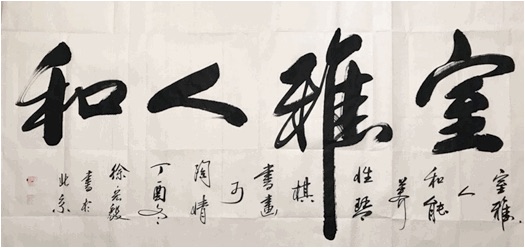 室雅人和
室雅
人
和能
养
性琴
棋
書畫
可
陶情
丁酉冬
徐
書於
北京